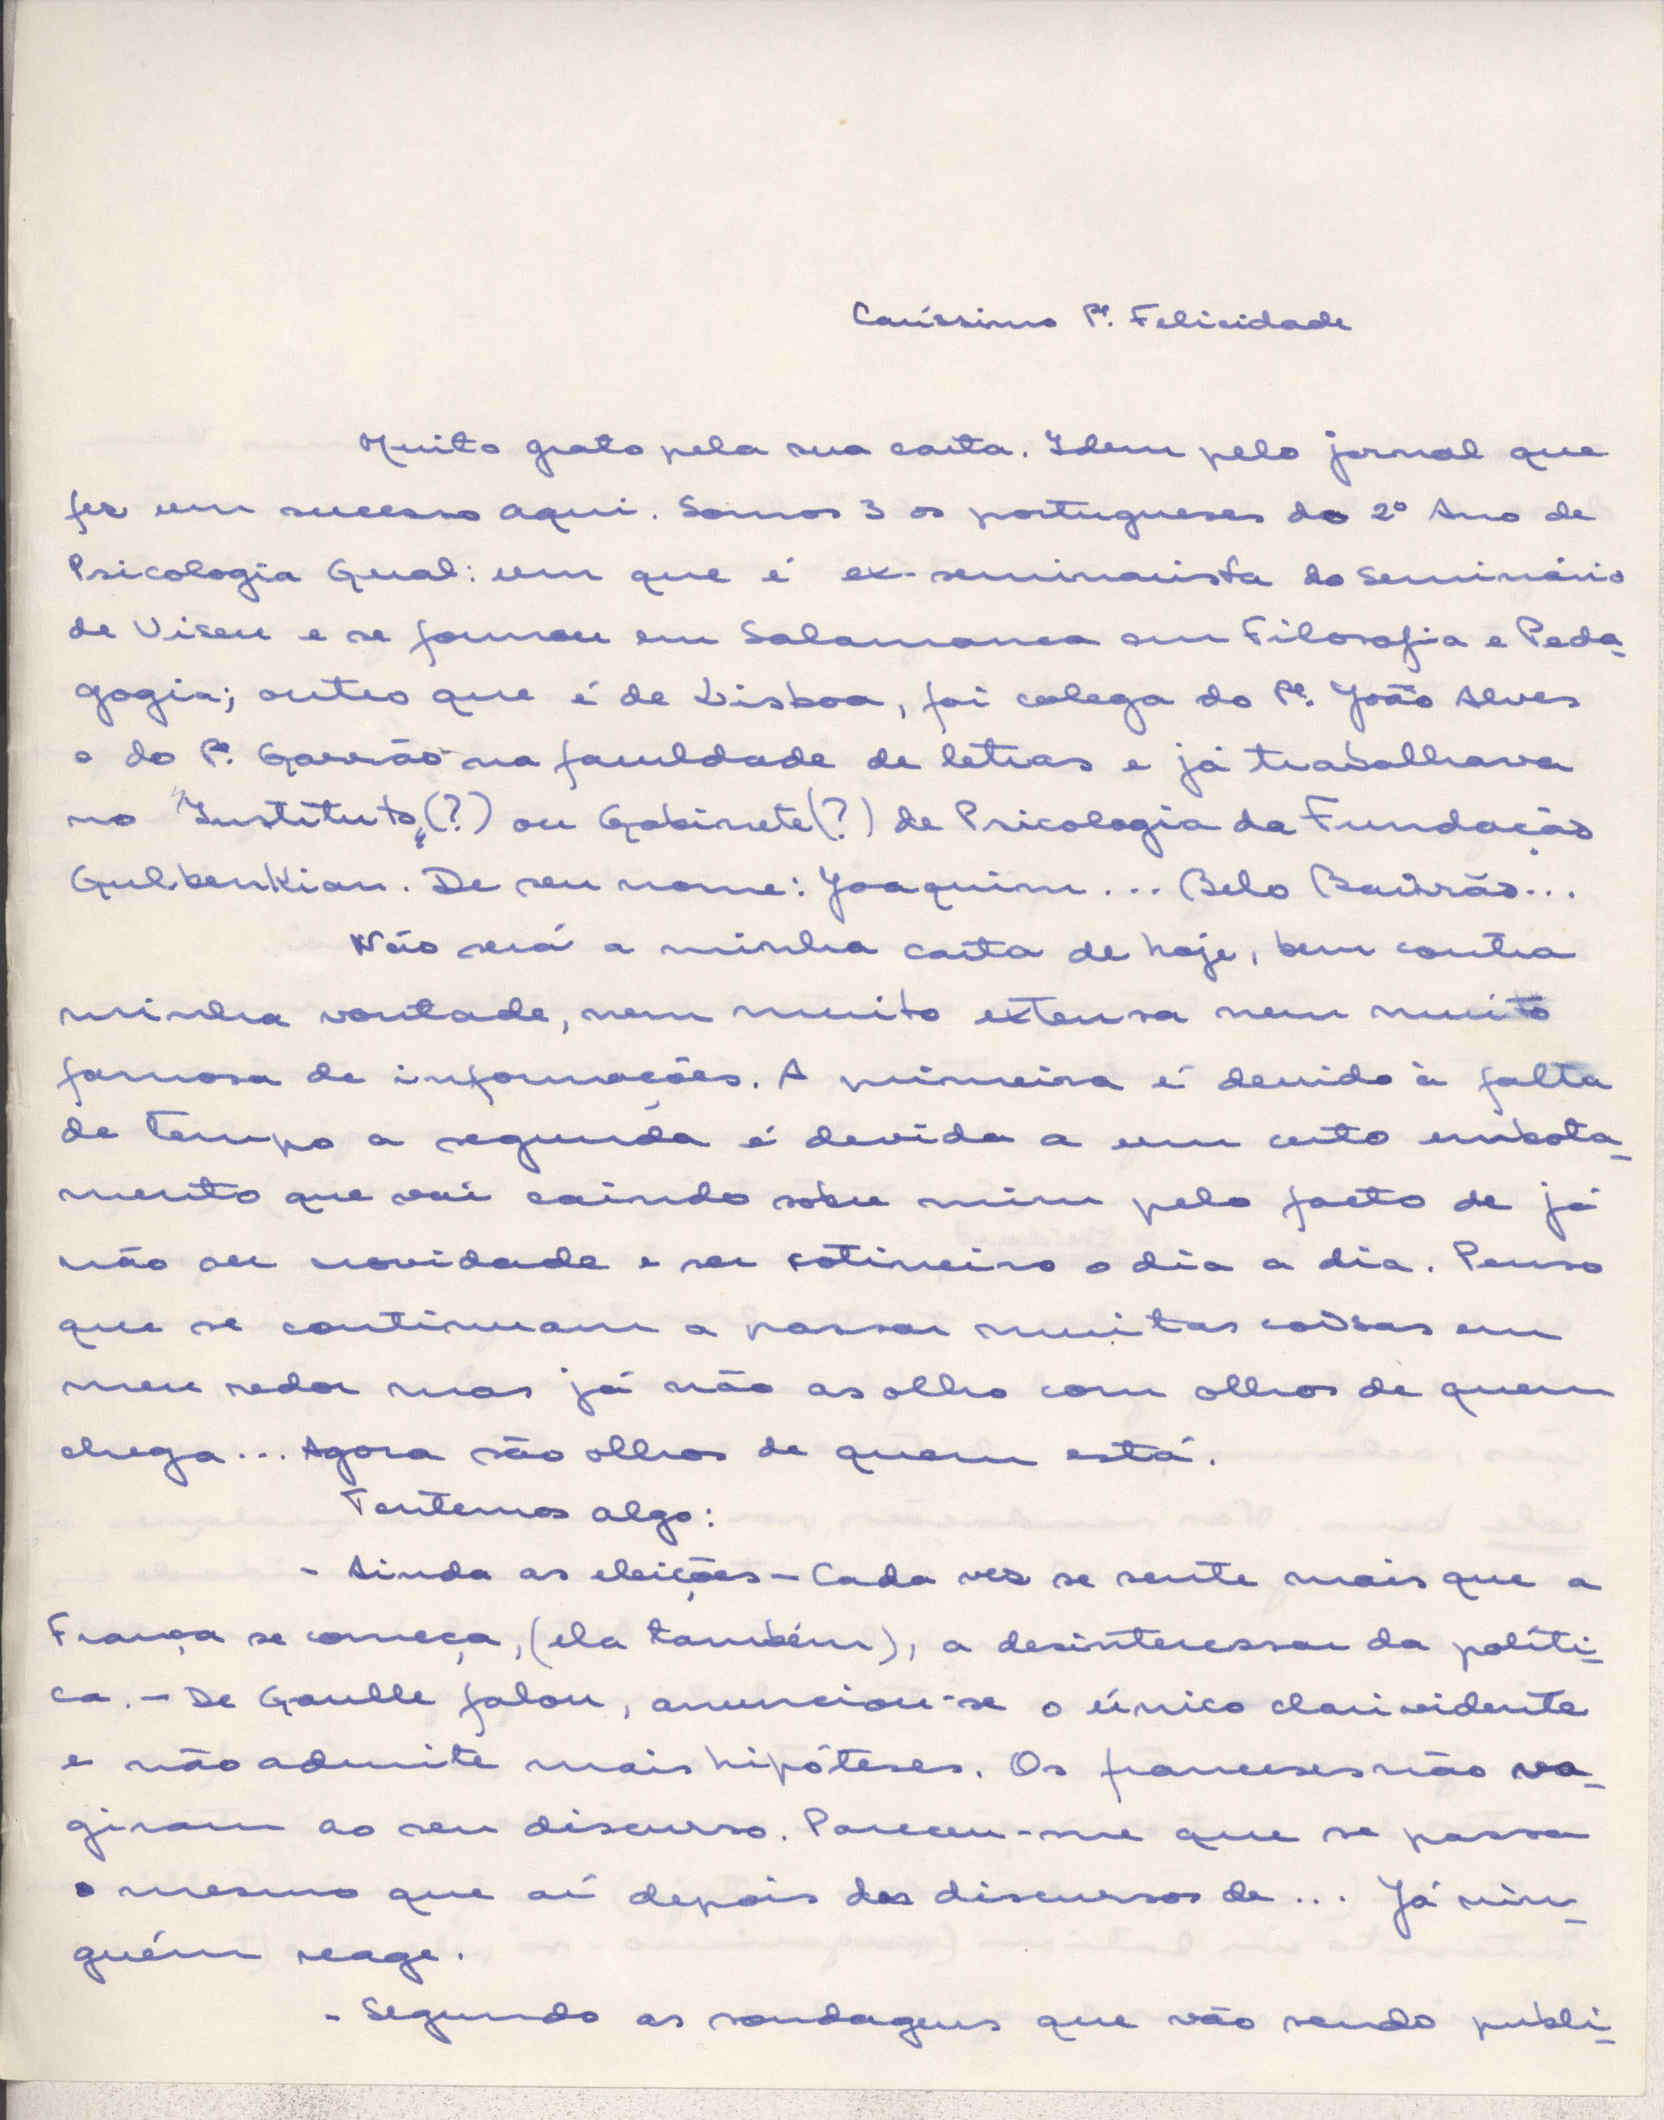 Caríssimo Pe. Felicidade
Muito grato pela sua carta. Idem pelo jornal que
fez um sucesso aqui. Somos 3 os portugueses do 2º Ano de
Psicologia Geral: um que é ex-seminarista do Seminário
de Viseu e se formou em Salamanca em Filosofia e Peda-
gogia; outro que é de Lisboa, foi colega do Pe. João Alves
e do Pe. Garrão na faculdade de letras e já trabalhava
no "Instituto" (?) ou Gabinete (?) de Psicologia da Fundação
Gulbenkian. De seu nome: Joaquim... Belo Bairrão...
Não será a minha carta de hoje, bem contra
minha vontade, nem muito extensa nem muito
famosa de informações. A primeira é devido à falta
de tempo a segunda é devida a um certo embota-
mento que vai caindo sobre mim pelo facto de já
não ser novidade e ser rotineiro o dia a dia. Penso
que se continuam a passar muitas coisas em
meu redor mas já não as olho com olhos de quem
chega... Agora são olhos de quem está.
Tentemos algo:
- Ainda as eleições - Cada vez se sente mais que a
França se começa, (ela também), a desinteressar da políti-
ca. - De Gaulle falou, anunciou-se o único clarividente
e não admite mais hipóteses. Os franceses não
giram ao seu discurso. Pareceu-me que se passa
o mesmo que aí depois dos discursos de... Já nin-
guém reage.
- Segundo as sondagens que vão sendo publi-